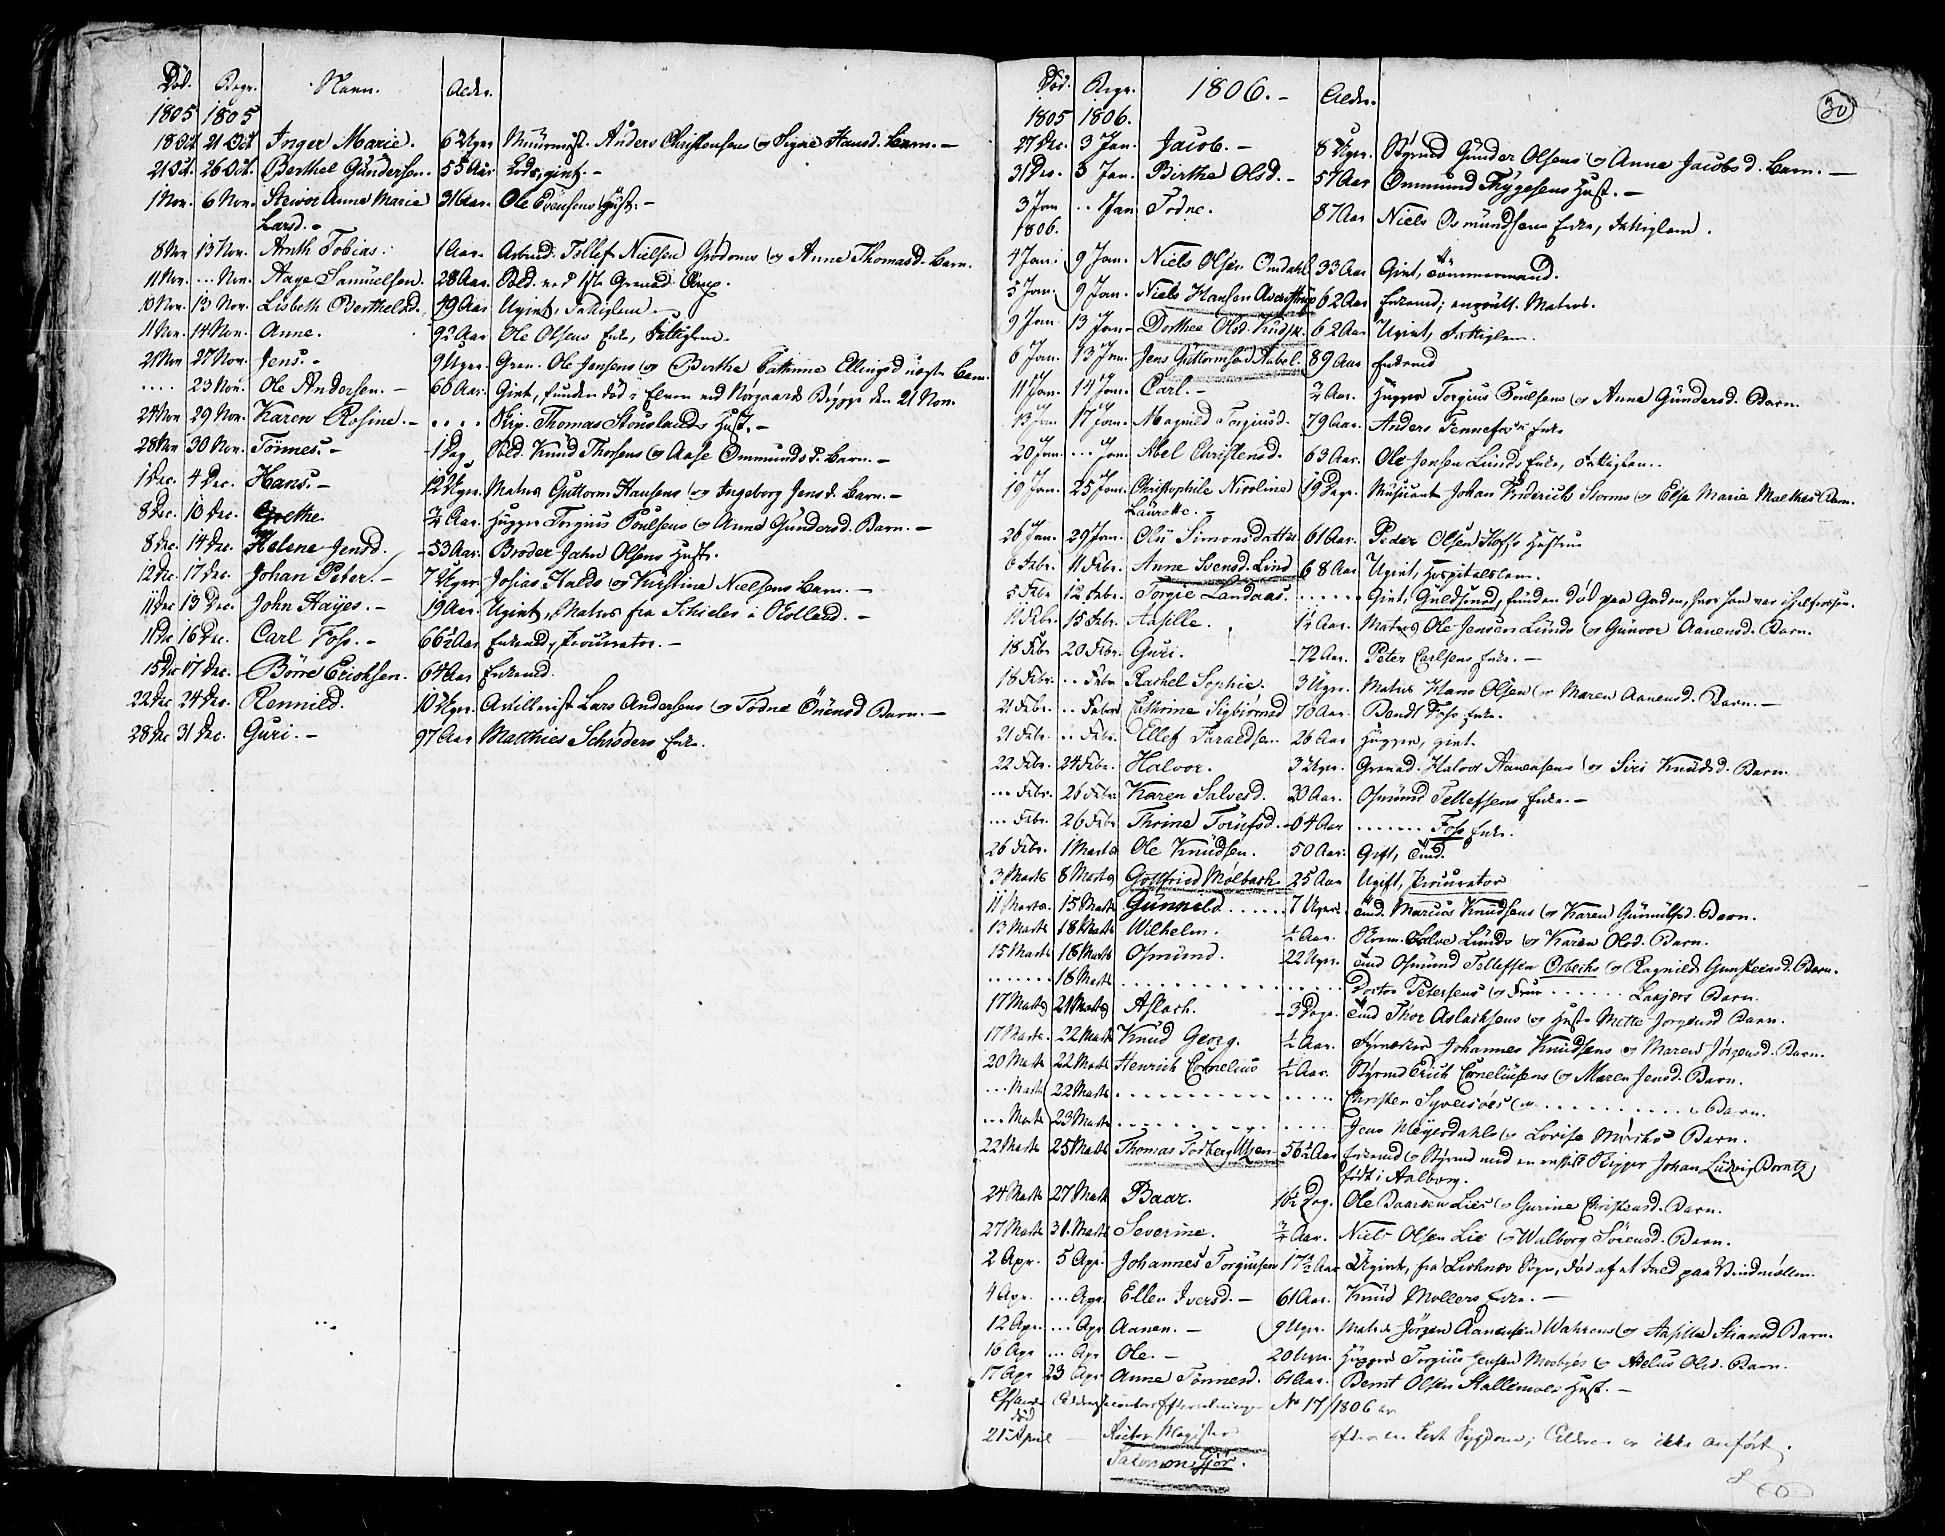 Död. Begr. Navn. Alder.
1805 1805
18 Oct. 21 Oct. Inger Marie. 6 Uger Muurmest. Anders Christensens og Signe Hansd. Barn. -
21 Oct. 26 Oct. Berthel Gundersen. 55 Aar Lods, givt. -
1 Nov. 6 Nov. Steivor Anne Marie 31 Aar. Ole Evensens Hust. -
Larsd. -
8 Nov 13 Nov. Arnth Tobias. 1 Aar. Arbmd. Tollef Nielsen Grödoms og Anne Thomasd. Barn.
11 Nov. ... Nov. Aage Samuelsen. 28 Aar. Sold. ved Grenad. Comp.
10 Nov. 13 Nov. Lisbeth Bertheld. 49 Aar Ugivt, Fattiglem.
11 Nov. 14 Nov. Anne. 92 Aar Ole Olsens Enke, Fattiglem.
21 Nov 27 Nov. Jens. - 9 Uger. Gren. Ole Jensens og Birthe Cathrine Ellingsd. Barn.
.... 23 Nov. Ole Andersen. - 66 Aar. Givt, funden död i Elven ved Nörgaards Brygge den 21 Nov.
24 Nov 29 Nov. Karen Rosine. - .... Skip. Thomas Stouslands Hust. -
28 Nov 30 Nov. Tönnes. - 1 Dag. Sold. Knud Thorsens og Aase Ommundsd. Barn. -
1 Dec. 4 Dec. Hans. - 12 Uger. Matros Guttorm Hansens og Ingeborg Jensd. Barn. -
8 Dec. 10 Dec. Grethe. ¾ Aar. Hugger Torgius Poulsens og Anne Gundersd. Barn. -
8 Dec. 14 Dec. Helene Jensd. - 53 Aar. Broder Jahn Olsens Hust.
12 Dec. 17 Dec. Johan Peter. - 7 Uger. Josias Halds og Kirstine Nielsens Barn. -
11 Dec 13 Dec. John Hayes. - 19 Aar. Ugivt, Matros fra Schieles i -
11 Dec 16 Dec. Carl Foss. - 66½ Aar Enkemd, Procurator. -
15 Dec 17 Dec. Börre Erichsen. 64 Aar Enkemd.
22 Dec 24 Dec. Rennild. 10 Uger. Artillerist Lars Andersens og Todne Önensd Barn. -
28 Dec 31 Dec. Guri. - 97 Aar Matthies Schröders Enke.
30
Död. Begr. 1806. - Alder.
1805 1806.
27 Dec. 3 Jan. Jacob. - 8 Uger. Styrmd Gunder Olsens og Anne Jacobsd. Barn. -
31 Dec. 3 Jan. Birthe Olsd. - 57 Aar Ommund Thygesens Hust. -
3 Jan .. Jan Todne. 87 Aar Niels Osmundsens Enke, Fattiglem.
1806.
4 Jan. 9 Jan. Niels Olsen Omdahl. 33 Aar Givt, Tömmermand.
5 Jan. 9 Jan. Niels Hansen 62 Aar Enkemd; Matros.
9 Jan 13 Jan. Dorthea Olsd. 62 Aar Ugivt, Fattiglem.
6 Jan. 13 Jan. Jens Guttormsen Aabel. 89 Aar Enkemd
11 Jan. 14 Jan. Carl. - ½ Aar. Hugger Torgius Poulsens og Anne Gundersd. Barn.
13 Jan 17 Jan. Magnild Torgiusd. 79 Aar. Anders Tennefos' Enke
20 Jan. ... Jan. Abel Christensd. 63 Aar. Ole Jensen Lunds Enke, Fattiglem.
19 Jan. 25 Jan. Christophile Nicoline 19 Dage. Musicant Johan Friderich Storms og Else Marie Malthes Barn.
Laurette. -
26 Jan. 29 Jan. Oli Simonsdatter 61 Aar. Peder Olsen Hustrue
6 Febr. 11 Febr. Anne Svensd. Lind 68 Aar Ugivt, Hospitalslem.
5 Febr 12 Febr. Torgie Landaas. ...... Givt, Guldsmed, funden död paa Gaden, hvor han var ihjelfrossen.
11 Febr. 15 Febr. Aasille. 1½ Aar. Matros Ole Jensen Lunds og Gunvor Aanensd. Barn.
18 Febr 20 Febr. Guri. - 72 Aar. Peter Carlsens Enke. -
18 Febr. .. Febr Rachel Sophie. 3 Uger. Matros Hans Olsen og Maren Aanensd. Barn. -
21 Febr. .. Febr Cathrine Sigbiörnsd 70 Aar. Bendt Foss Enke.
21 Febr. .. Febr. Ellef Taraldsen. 26 Aar Hugger, givt.
22 Febr. 24 Febr. Halvor. 3 Uger. Grenad. Halvor Aanensens og Siri Knudsd. Barn.
... Febr. 26 Febr. Karen Salvesd. 30 Aar. Osmund Tellefsens Enke. -
... Febr. 26 Febr Thrine Torufsd. - 64 Aar ....... Foss Enke.
26 Febr. 1 Marts Ole Knudsen. 50 Aar. Gift,
3 Marts 8 Marts Gottfried Molbach 25 Aar Ugift, Procurator
11 Marts 15 Marts Gunnild ...... 7 Uger. Marcus Knudsens og Karen Gunnulfsd. Barn.
13 Marts 18 Marts Wilhelm. ½ Aar. Salve Lunds og Karen Olsd. Barn.
15 Marts 18 Marts Osmund. 22 Uger. Osmund Tellefsen Orbechs og Ragnild Gunsteinsd. Barn.
....... 18 Marts ............... Doctor Petersens og Frue ...... Laasjers Barn.
17 Marts 21 Marts Aslach. - 3 Dage. Thor Aslachsens og Hust. Mette Jorgensd Barn.
17 Marts. 22 Marts Knud Georg. ½ Aar. Johannes Knudsens og Maren Jörgensd. Barn.
20 Marts 22 Marts Henrich Cornelius ½ Aar. Styrmd Erich Corneliusens og Maren Jensd. Barn.
... Marts 22 Marts ............ ..... Christen Syversöes og ............ Barn.
... Marts 23 Marts ............ ..... Jens Meyesdahls og Lovise Mörchs Barn.
22 Marts 25 Marts Thomas Fosberg Utzen 56½ Aar Enkemd og Styrmd med en Skipper Johan Ludvig
födt i Aalborg.
24 Marts 27 Marts Baar. 16½ Dag. Ole Baarsen Lies og Gurine Christensd. Barn.
27 Marts 31. Marts Severine. ¾ Aar. Niels Olsen Lie og Walborg Sörensd. Barn.
2 Apr. 5 Apr. Johannes Torgiusen 17½ Aar Ugivt, fra Sogn, död af et Fald paa Vindmöllen.
4 Apr. ... Apr. Ellen Iversd. - 61 Aar. Knud Mollers Enke. -
12 Apr. ... Apr Aanen. - 9 Uger. Matros Jörgen Aanensen Wahrens og Aasille Barn.
16 Apr ... Apr Ole. - 20 Uger. Hugger Torgius Jensen Mosbyes og Abelus Olsd. Barn.
17 Apr 23 Apr Anne Tönnesd. 61 Aar. Bernt Olsen Stallemoes Hust. -
No 17/1806 er
död
21 April Rector Magister efter en kort Sygdom; Alderen er ikke anfört.
Salomon Gjör.